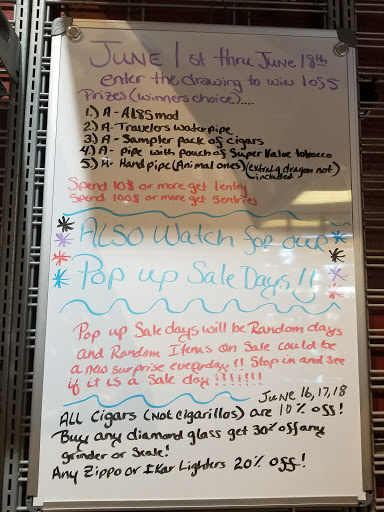 JUNE 1st thru June 18th
enter the drawing to win 1 of 5
Prizes (winners choice)....
1.) A - AL85 mod
2.) A - Travelers waterpipe
3.) A - Sampler pack of cigars
4.) A - pipe with pouch of Super Value tobacco
5.) A - Hand pipe (Animal ones) (extra Lg dragon not included)
Spend 10$ or more get 1 entry
Spend 100$ or more get 5 entries
ALSO Watch for our
Pop up Sale Days!!
Pop up Sale days will be Random days
and Random Items on Sale could be
a new surprise everyday!! Stop in and see
if it is a Sale day!!!!!!!
June 16, 17, 18
All Cigars (Not Cigarillos) are 10% off!
Buy any diamond glass get 30% off any
grinder or Scale!
Any Zippo or Xkar Lighters 20% off!